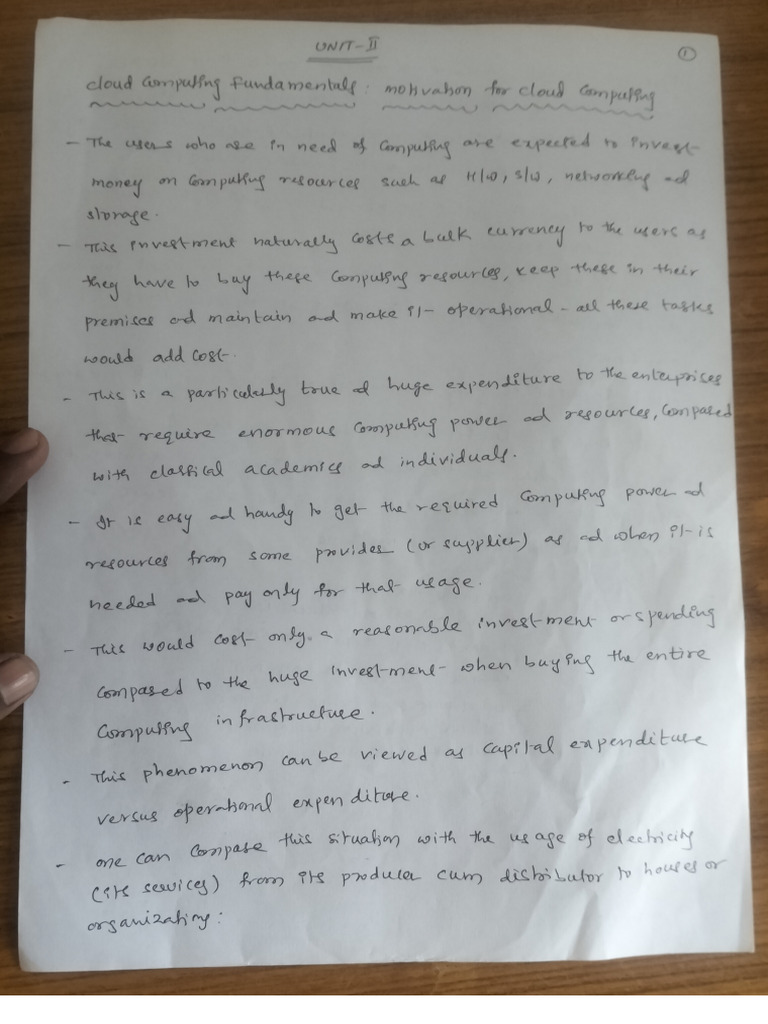 UNIT-II
1
Cloud Computing Fundamentals: motivation for Cloud Computing
- The users who are in need of Computing are expected to invest
money on Computing resources such as H/W, S/W, networking ad
storage.
- This investment naturally costs a bulk currency to the users as
they have to buy these Computing resources, keep these in their
premises ad maintain ad make it operational - all these tasks
would add cost.
- This is a particularly true ad huge expenditure to the enterprises
that require enormous Computing power ad resources, Compared
with classical academics ad individuals.
- It is easy ad handy to get the required Computing power ad
resources from some provider (or supplier) as ad when it is
needed ad pay only for that usage.
- This would cost only a reasonable investment or spending
Compared to the huge investment when buying the entire
Computing infrastructure.
- This phenomenon can be viewed as capital expenditure
versus operational expenditure.
- one can compare this situation with the usage of electricity
(its services) from its producer cum distributor to houses or
organizations: